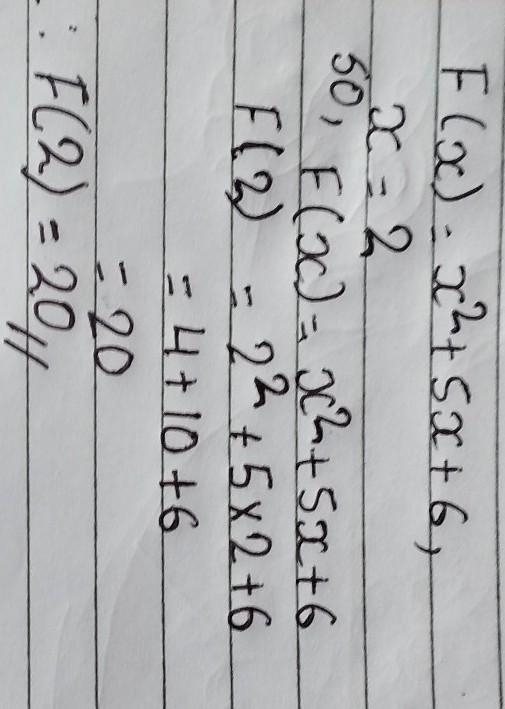 F(x) = x² + 5x + 6,
x = 2
so, F(x) = x² + 5x + 6
F(2) = 2² + 5 × 2 + 6
= 4 + 10 + 6
= 20
∴ F(2) = 20 //